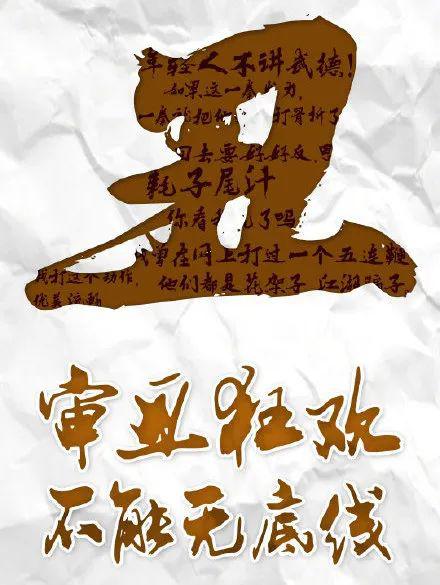 丑
年轻人不讲武德!
如果这一拳发力,
一拳就把他 打骨折了
回去要好好反思
耗子尾汁
你看我 了吗
我曾在网上打过一个五连鞭
我打这个动作, 他们都是花架子 江湖骗子,
优美流畅
审丑狂欢
不能无底线